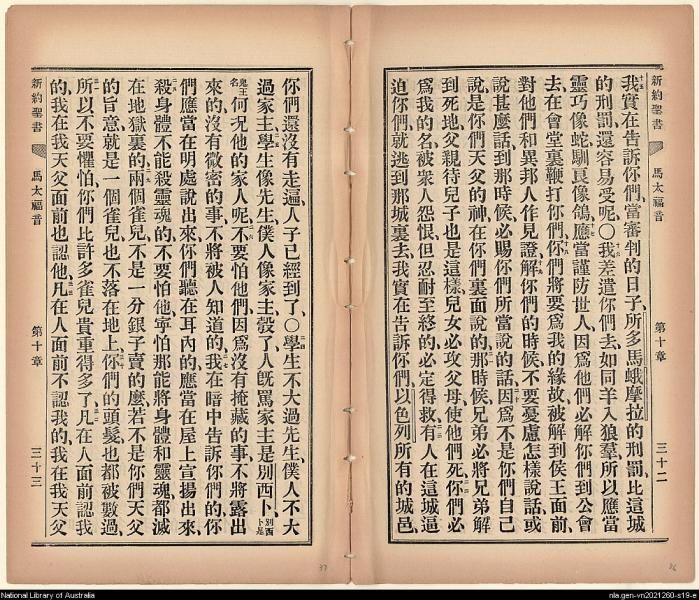 新約聖書 馬太福音 第十章 三十二
我實在告訴你們、當審判的日子、所多馬蛾摩拉的刑罰、比這城
的刑罰、還容易受呢、〇我差遣你們去、如同羊入狼羣、所以應當
靈巧像蛇、馴良像鴿、應當謹防世人、因爲他們必解你們到公會
去、在會堂裏鞭打你們、你們將要爲我的緣故、被解到侯王面前、
對他們和異邦人作見證、解你們的時候、不要憂慮怎樣說話、或
說甚麼話、到那時候、必賜你們所當說的話、因爲不是你們自己
說、是你們天父的神、在你們裏面說的、那時候兄弟必將兄弟解
到死地、父親待兒子也是這樣、兒女必攻父母、使他們死、你們必
爲我的名、被衆人怨恨、但忍耐至終的、必定得救、有人在這城逼
迫你們、就逃到那城裏去、我實在告訴你們、以色列所有的城邑、
你們還沒有走遍、人子已經到了、〇學生不大過先生、僕人不大
過家主、學生像先生、僕人像家主、彀了、人旣罵家主是別西卜、別西卜是
鬼王名何况他的家人呢、不要怕他們、因爲沒有掩藏的事、不將露出
來的、沒有微密的事、不將被人知道的、我在暗中告訴你們的、你
們應當在明處說出來、你們聽在耳內的、應當在屋上宣揚出來、
殺身體不能殺靈魂的、不要怕他、寧怕那能將身體和靈魂都滅
在地獄裏的、兩個雀兒、不是一分銀子賣的麼、若不是你們天父
的旨意、就是一個雀兒、也不落在地上、你們的頭髮、也都被數過、
所以不要懼怕、你們比許多雀兒貴重得多了、凡在人面前認我
的、我在我天父面前也認他、凡在人面前不認我的、我在我天父
新約聖書 馬太福音 第十章 三十三
37
36
National Library of Australia
nla.gen-vn2021260-s19-e